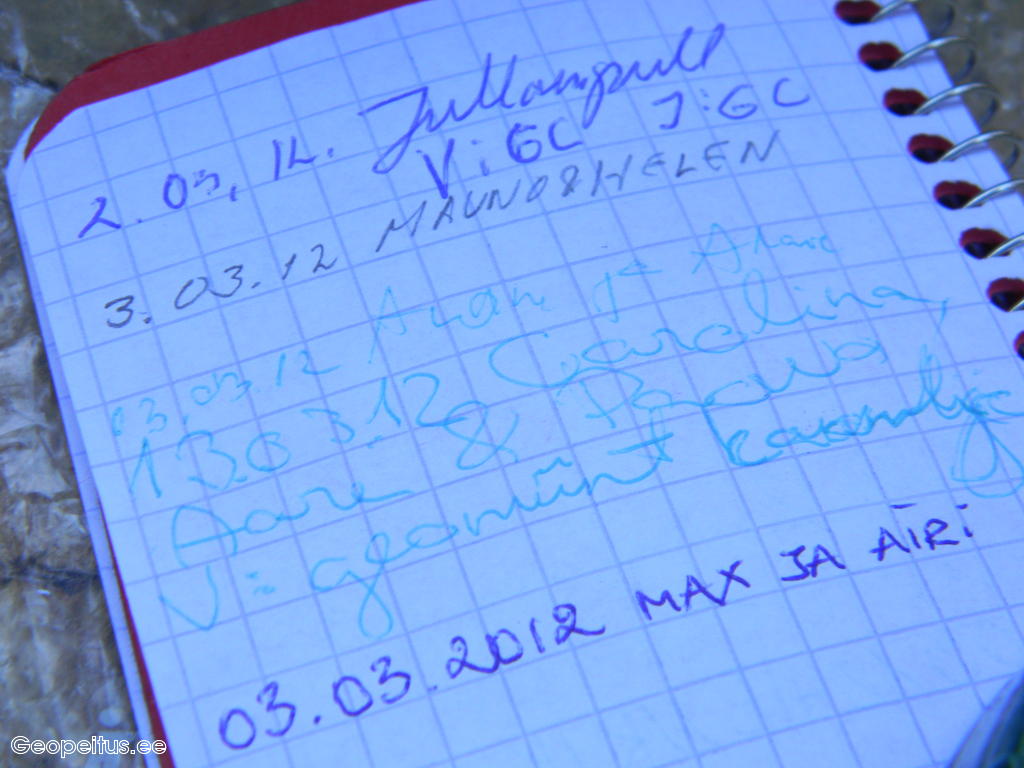 2.03.12. Jullampull
V: GC J: GC
3.03.12 MAUNO & HELEN
03.03.12
13.03.12 Carolina,
Aare &
V: geomünt
03.03.2012 MAX JA AIRi
Geopeitus.ee